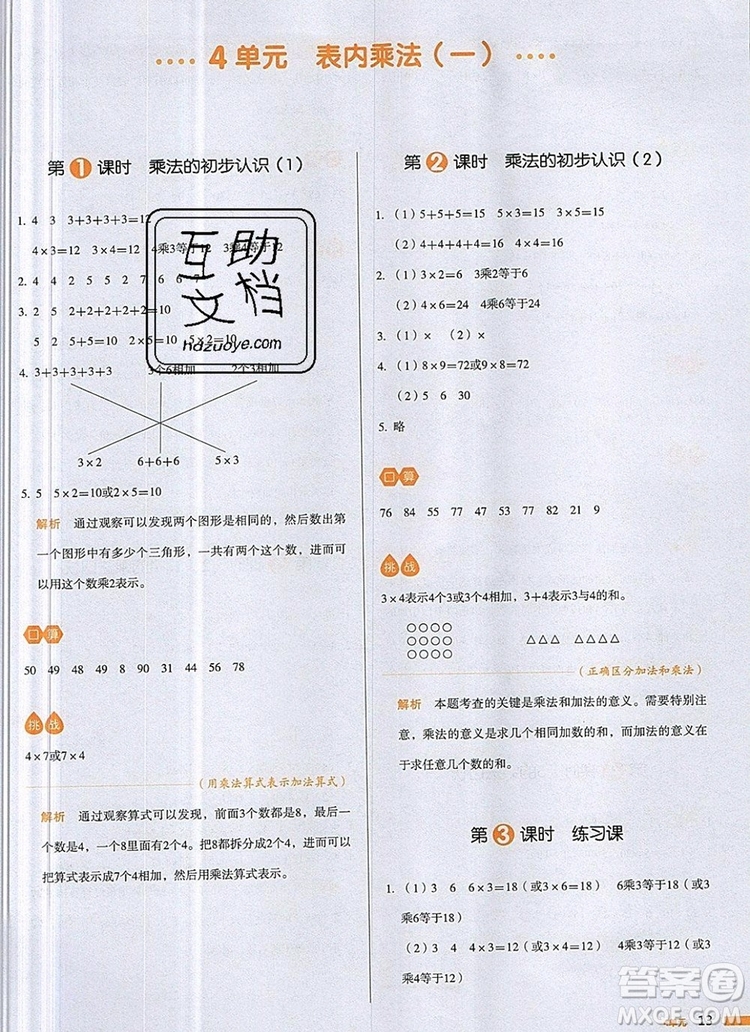 4单元 表内乘法（一）
第1课时 乘法的初步认识（1）
1. 4 3 3+3+3+3=12
4×3=12 3×4=12 4乘3等于12 3乘4等于12
2. 4 4 2 2 8 5 5 7 6 6 7
3. 5 2 2+2+2+2+2=10
5 2 5×2=10 2×5=10 5×2=10
4. 3+3+3+3+3 3个6相加 2个3相加
3×2 6+6+6 5×3
5. 5 5×2=10或2×5=10
解析 通过观察可以发现两个图形是相同的，然后数出第
一个图形中有多少个三角形，一共有两个这个数，进而可
以用这个数乘2表示。
口算
50 49 48 49 90 45 56 78
挑战
4×7或7×4
（用乘法算式表示加法算式）
解析 通过观察算式可以发现，前面3个数都是8，最后一
个数是4，一个8里面有2个4。把8都拆分成2个4，这样就可以
把算式表示成7个4相加，再用乘法算式表示。
第2课时 乘法的初步认识（2）
1.（1）5+5+5=15 5×3=15 3×5=15
（2）4+4+4+4=16 4×4=16
2.（1）3×2=6 3乘2等于6
（2）4×6=24 4乘6等于24
3.（1）× （2）×
4.（1）8×9=72或9×8=72
（2）5 6 30
5. 略
口算
76 84 55 77 47 53 77 82 21 9
挑战
3×4表示4个3或3个4相加，3+4表示3与4的和。
○○○○
○○○○ △△△ △△△△
○○○○
（正确区分加法和乘法）
解析 本题考查的关键是乘法和加法的意义。需要特别注
意，乘法的意义是求几个相同加数的和，而加法的意义在
于求任意几个数的和。
第3课时 练习课
1.（1）3 6 6×3=18（或3×6=18） 6乘3等于18（或3
乘6等于18）
（2）3 4 4×3=12（或3×4=12） 4乘3等于12（或3
乘4等于12）
互助
文档
hdzuoye.com
答案圈
MXQE.COM
13